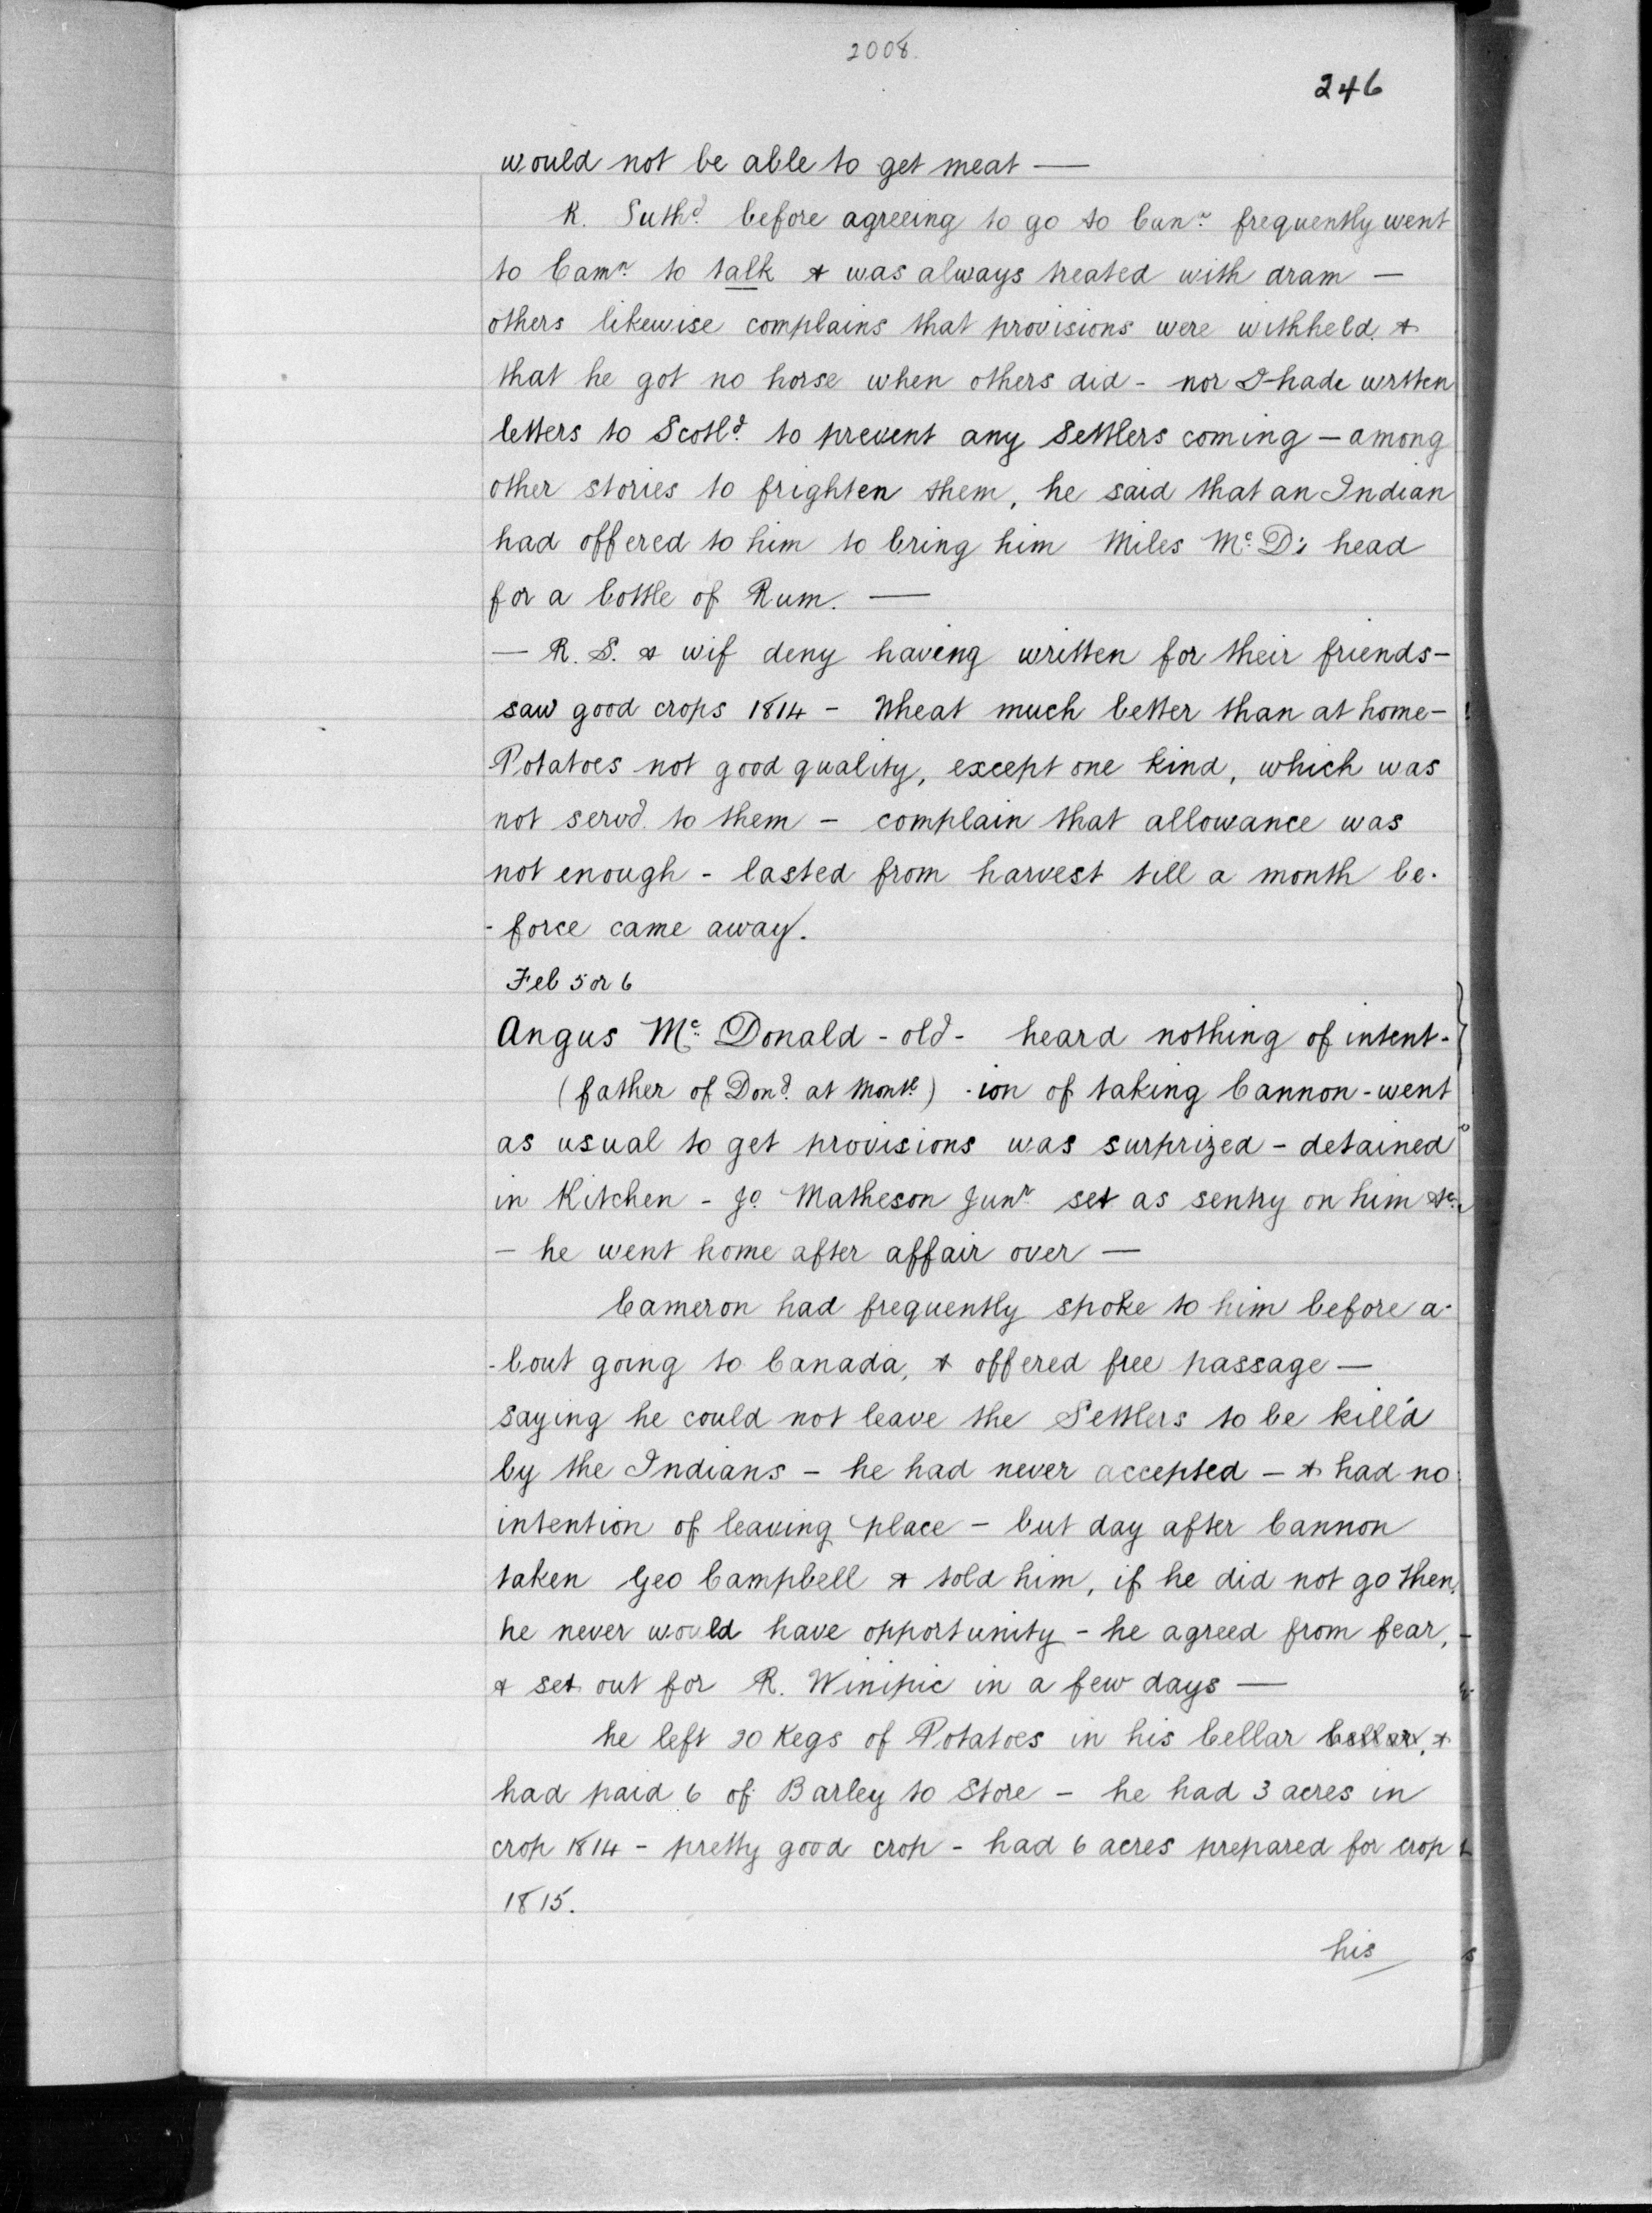 2008.
246
would not be able to get meat —
R. Suthd. before agreeing to go to Canr. frequently went
to Camn. to talk & was always treated with dram —
others likewise complains that provisions were withheld. &
that he got no horse when others did - nor I hade wrtten
letters to Scotld. to prevent any Settlers coming — among
other stories to frighten them, he said that an Indian
had offered to him to bring him Miles Mc. D's head
for a bottle of Rum. —
— R. S. & wif deny having written for their friends -
saw good crops 1814 - Wheat much better than at home -
Potatoes not good quality, except one kind, which was
not servd. to them - complain that allowance was
not enough - lasted from harvest till a month be-
-force came away.
Feb 5 or 6
Angus Mc. Donald - old - heard nothing of intent-
(father of Dond. at Montl.) -ion of taking Cannon - went
as usual to get provisions was surprized - detained
in Kitchen - Jo. Matheson Junr. set as sentry on him &c.
- he went home after affair over —
Cameron had frequently spoke to him before a-
-bout going to Canada, & offered free passage —
saying he could not leave the Settlers to be kill'd
by the Indians - he had never accepted - & had no
intention of leaving place - but day after Cannon
taken Geo Campbell & told him, if he did not go then,
he never would have opportunity - he agreed from fear,
& set out for R. Winipic in a few days —
he left 20 Kegs of Potatoes in his Cellar Cellar, &
had paid 6 of Barley to Store - he had 3 acres in
crop 1814 - pretty good crop - had 6 acres prepared for crop
1815.
his